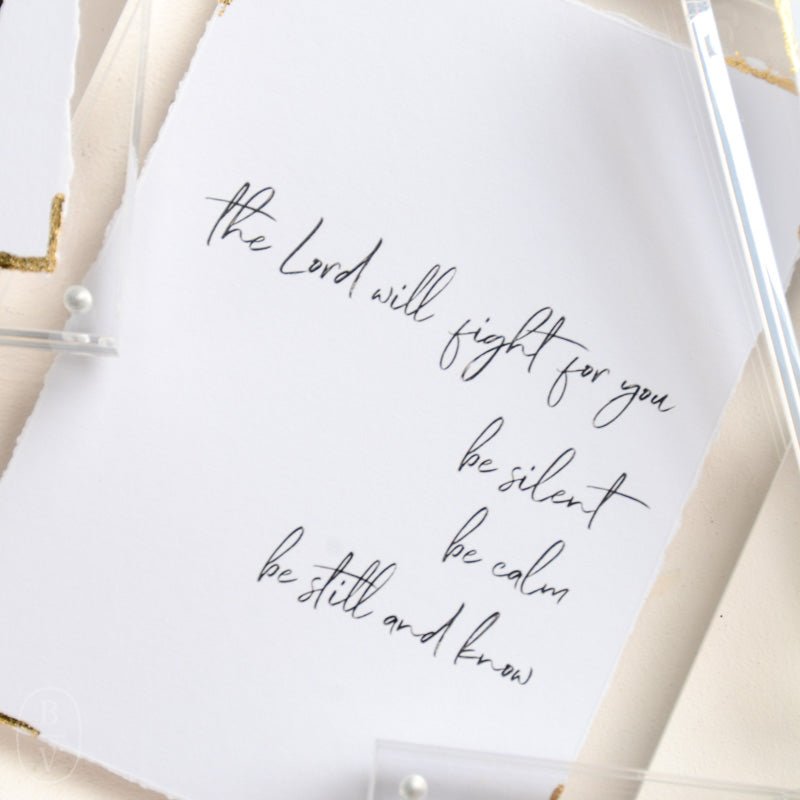 the Lord will fight for you
be silent
be calm
be still and know
B
V